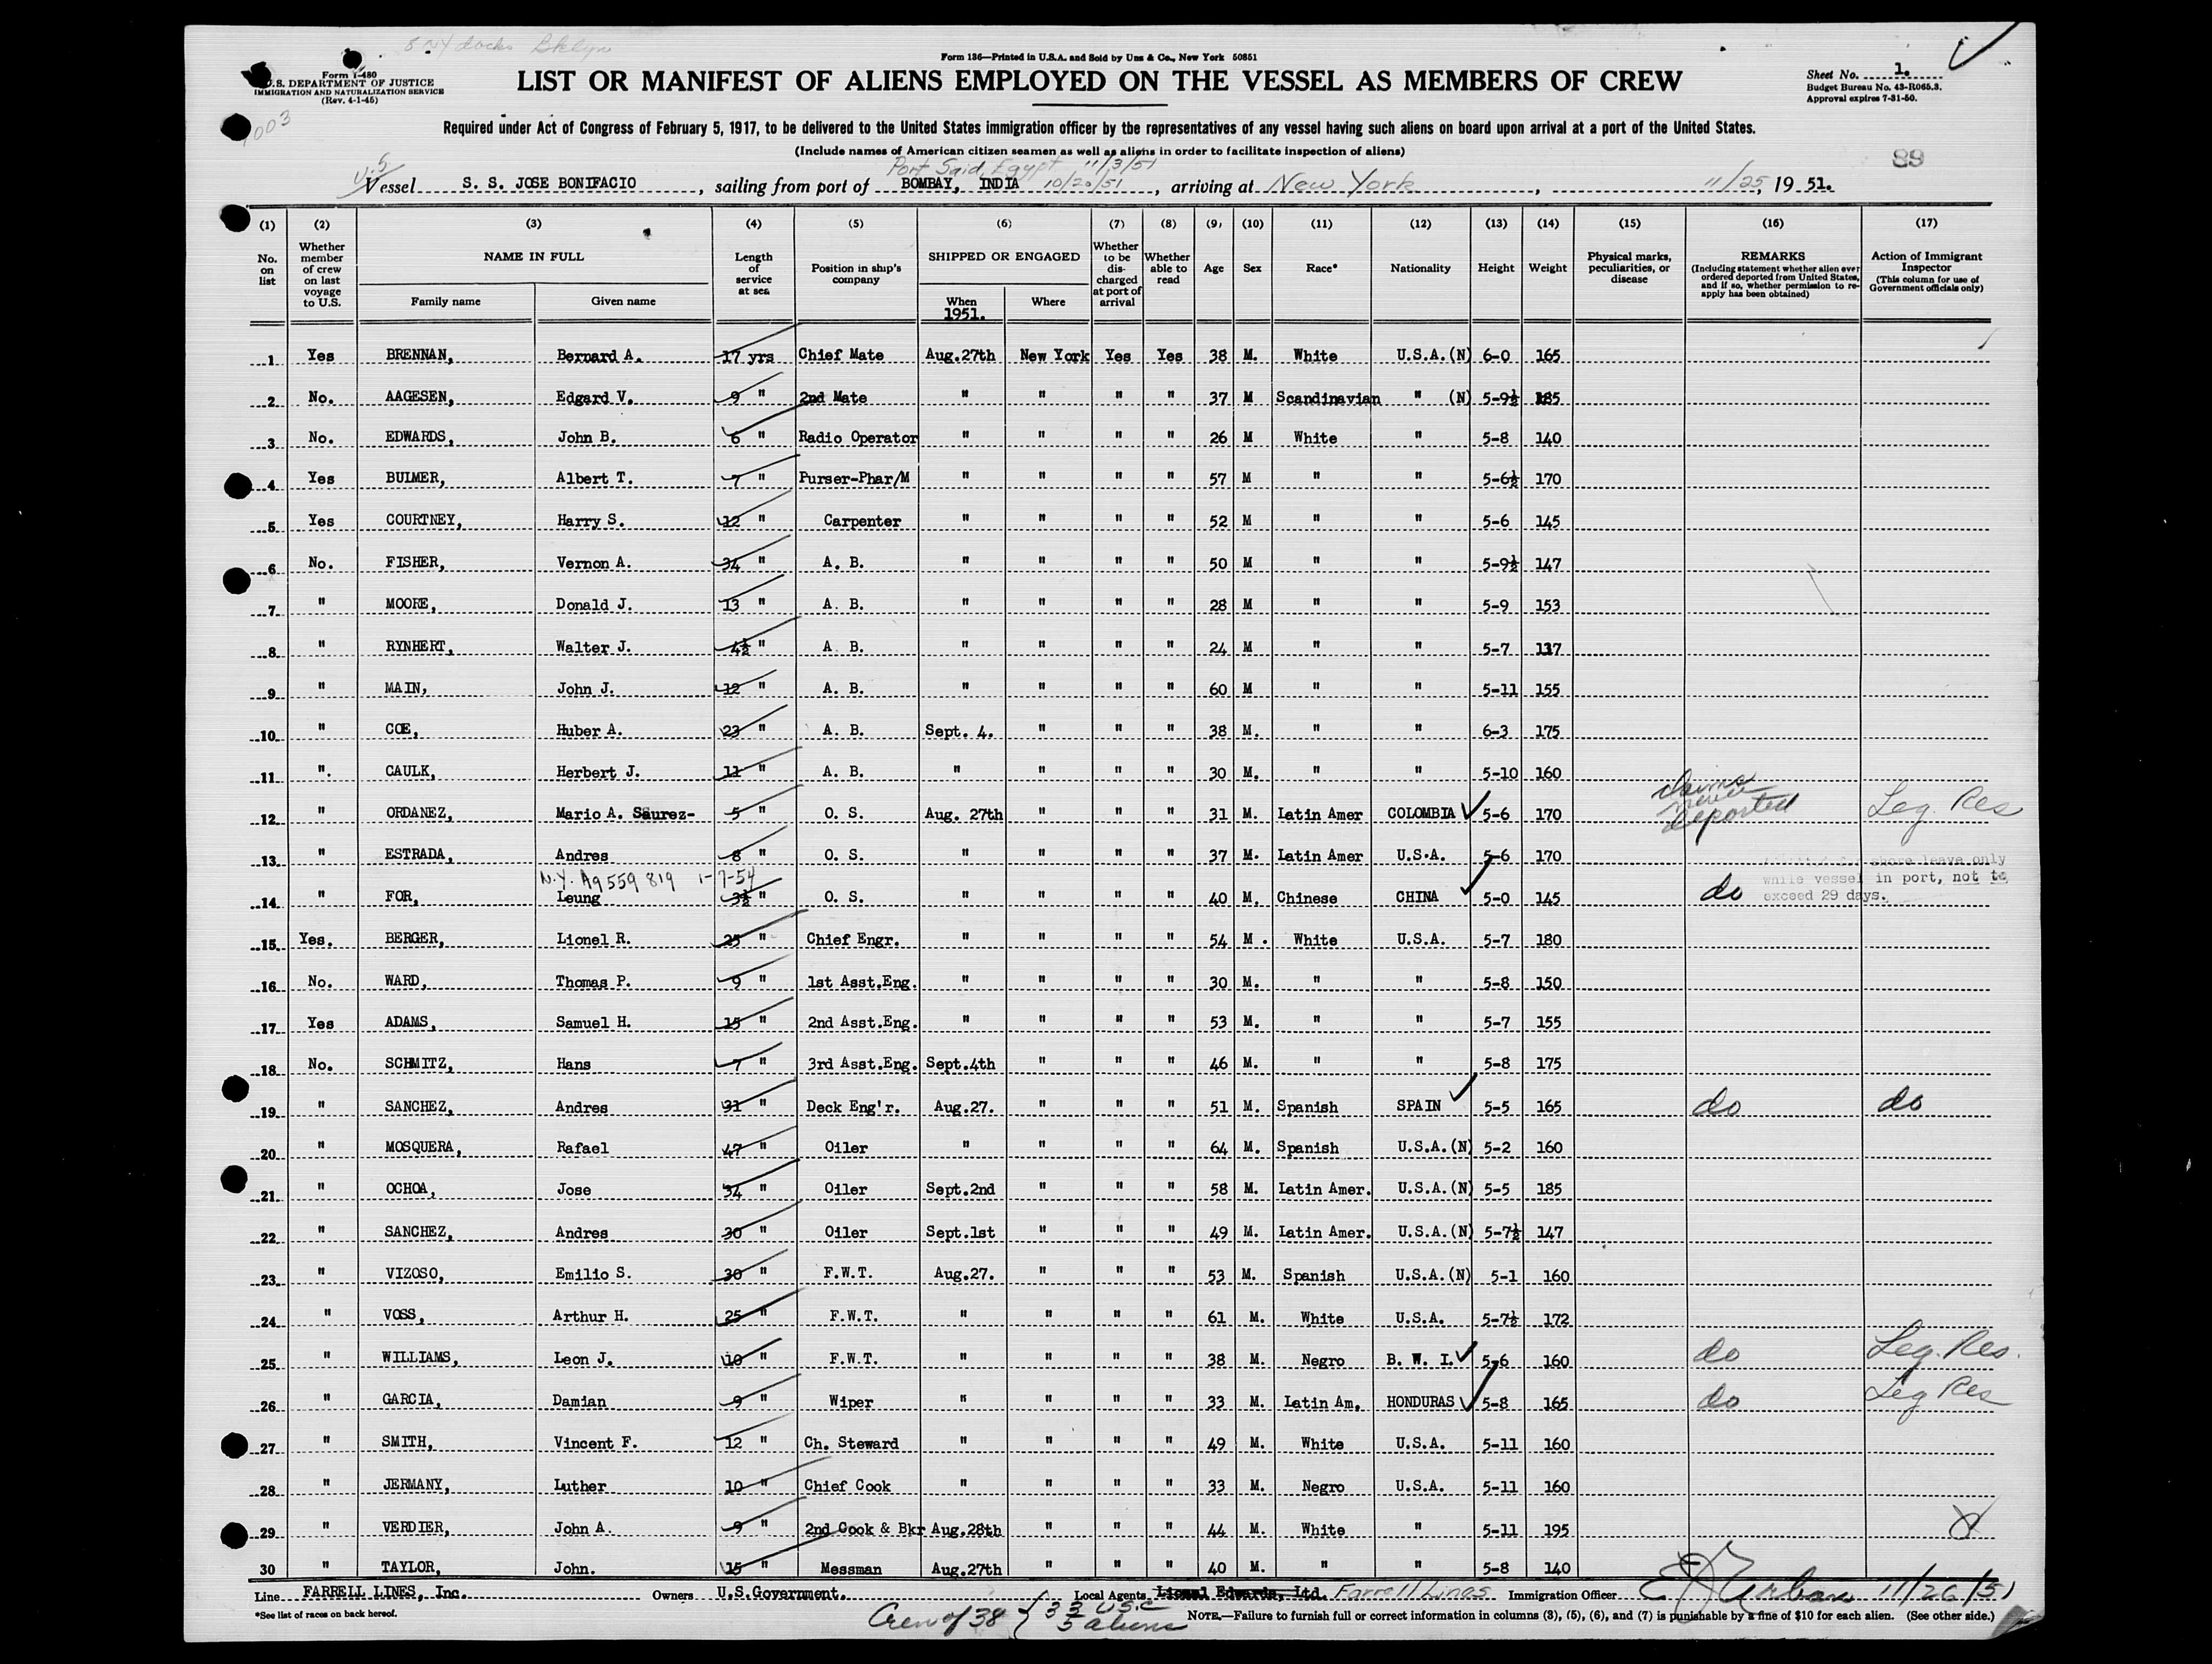 5 NY docks Bklyn
Form I-480
U.S. DEPARTMENT OF JUSTICE
IMMIGRATION AND NATURALIZATION SERVICE
(Rev. 4-1-45)
Form 136—Printed in U.S.A. and Sold by Unz & Co., New York 50851
LIST OR MANIFEST OF ALIENS EMPLOYED ON THE VESSEL AS MEMBERS OF CREW
Sheet No. 1.
Budget Bureau No. 43-R065.3.
Approval expires 7-31-50.
Required under Act of Congress of February 5, 1917, to be delivered to the United States immigration officer by the representatives of any vessel having such aliens on board upon arrival at a port of the United States.
(Include names of American citizen seamen as well as aliens in order to facilitate inspection of aliens)
89
Port Said, Egypt 11/3/51
Vessel S. S. JOSE BONIFACIO, sailing from port of BOMBAY, INDIA 10/20/51, arriving at New York, 11/25, 19 51.
(1) (2) (3) (4) (5) (6) (7) (8) (9) (10) (11) (12) (13) (14) (15) (16) (17)
No. on list
Whether member of crew on last voyage to U.S.
NAME IN FULL
Family name
Given name
Length of service at sea
Position in ship's company
SHIPPED OR ENGAGED
When
1951.
Where
Whether to be discharged at port of arrival
Whether able to read
Age
Sex
Race*
Nationality
Height
Weight
Physical marks, peculiarities, or disease
REMARKS
(Including statement whether alien ever ordered deported from United States, and if so, whether permission to reapply has been obtained)
Action of Immigrant Inspector
(This column for use of Government officials only)
1 Yes BRENNAN, Bernard A. 17 yrs Chief Mate Aug.27th New York Yes Yes 38 M. White U.S.A.(N) 6-0 165
2 No. AAGESEN, Edgard V. 9 " 2nd Mate " " " " 37 M Scandinavian " (N) 5-9½ 185
3 No. EDWARDS, John B. 6 " Radio Operator " " " " 26 M White " 5-8 140
4 Yes BULMER, Albert T. 7 " Purser-Phar/M " " " " 57 M " " 5-6½ 170
5 Yes COURTNEY, Harry S. 12 " Carpenter " " " " 52 M " " 5-6 145
6 No. FISHER, Vernon A. 34 " A. B. " " " " 50 M " " 5-9½ 147
7 " MOORE, Donald J. 13 " A. B. " " " " 28 M " " 5-9 153
8 " RYNHERT, Walter J. 4½ " A B. " " " " 24 M " " 5-7 137
9 " MAIN, John J. 12 " A. B. " " " " 60 M " " 5-11 155
10 " COE, Huber A. 23 " A. B. Sept. 4. " " " 38 M. " " 6-3 175
11 ". CAULK, Herbert J. 11 " A. B. " " " " 30 M. " " 5-10 160
12 " ORDANEZ, Mario A. Saurez- 5 " O. S. Aug. 27th " " " 31 M. Latin Amer COLOMBIA 5-6 170 claims never deported Leg. Res
13 " ESTRADA, Andres 8 " O. S. " " " " 37 M. Latin Amer U.S.A. 5-6 170
N.Y. A9 559 819 1-7-54
shore leave only
while vessel in port, not to
exceed 29 days.
14 " FOR, Leung 3½ " O. S. " " " " 40 M. Chinese CHINA 5-0 145 do
15 Yes. BERGER, Lionel R. 25 " Chief Engr. " " " " 54 M . White U.S.A. 5-7 180
16 No. WARD, Thomas P. 9 " 1st Asst.Eng. " " " " 30 M. " " 5-8 150
17 Yes ADAMS, Samuel H. 15 " 2nd Asst.Eng. " " " " 53 M. " " 5-7 155
18 No. SCHMITZ, Hans 7 " 3rd Asst.Eng. Sept.4th " " " 46 M. " " 5-8 175
19 " SANCHEZ, Andres 31 " Deck Eng'r. Aug.27. " " " 51 M. Spanish SPAIN 5-5 165 do do
20 " MOSQUERA, Rafael 47 " Oiler " " " " 64 M. Spanish U.S.A.(N) 5-2 160
21 " OCHOA, Jose 34 " Oiler Sept.2nd " " " 58 M. Latin Amer. U.S.A.(N) 5-5 185
22 " SANCHEZ, Andres 30 " Oiler Sept.1st " " " 49 M. Latin Amer. U.S.A.(N) 5-7½ 147
23 " VIZOSO, Emilio S. 30 " F.W.T. Aug.27. " " " 53 M. Spanish U.S.A.(N) 5-1 160
24 " VOSS, Arthur H. 25 " F.W.T. " " " " 61 M. White U.S.A. 5-7½ 172
25 " WILLIAMS, Leon J. 10 " F.W.T. " " " " 38 M. Negro B. W. I. 5-6 160 do Leg. Res.
26 " GARCIA, Damian 9 " Wiper " " " " 33 M. Latin Am. HONDURAS 5-8 165 do Leg Res
27 " SMITH, Vincent F. 12 " Ch. Steward " " " " 49 M. White U.S.A. 5-11 160
28 " JERMANY, Luther 10 " Chief Cook " " " " 33 M. Negro U.S.A. 5-11 160
29 " VERDIER, John A. 9 " 2nd Cook & Bkr Aug.28th " " " 44 M. White " 5-11 195
30 " TAYLOR, John. 15 " Messman Aug.27th " " " 40 M. " " 5-8 140
Line FARRELL LINES, Inc. Owners U.S.Government. Local Agents Lionel Edwards, Ltd. Farrell Lines Immigration Officer E Urban 11/26/51
*See list of races on back hereof.
Crew of 38 { 33 U.S.C
5 aliens
NOTE.—Failure to furnish full or correct information in columns (3), (5), (6), and (7) is punishable by a fine of $10 for each alien. (See other side.)